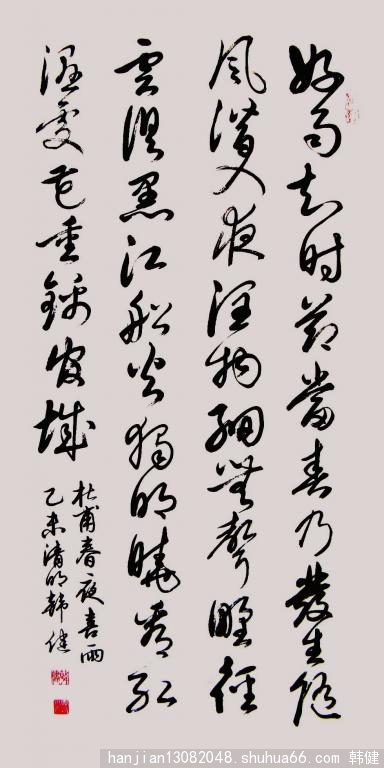 好雨知时節當春乃發生随
風潜入夜润物細無聲野径
雲俱黑江船火獨明曉看紅
濕處花重錦官城
杜甫春夜喜雨
乙未清明韩健
hanjian13082048.shuhua66.com 韩健